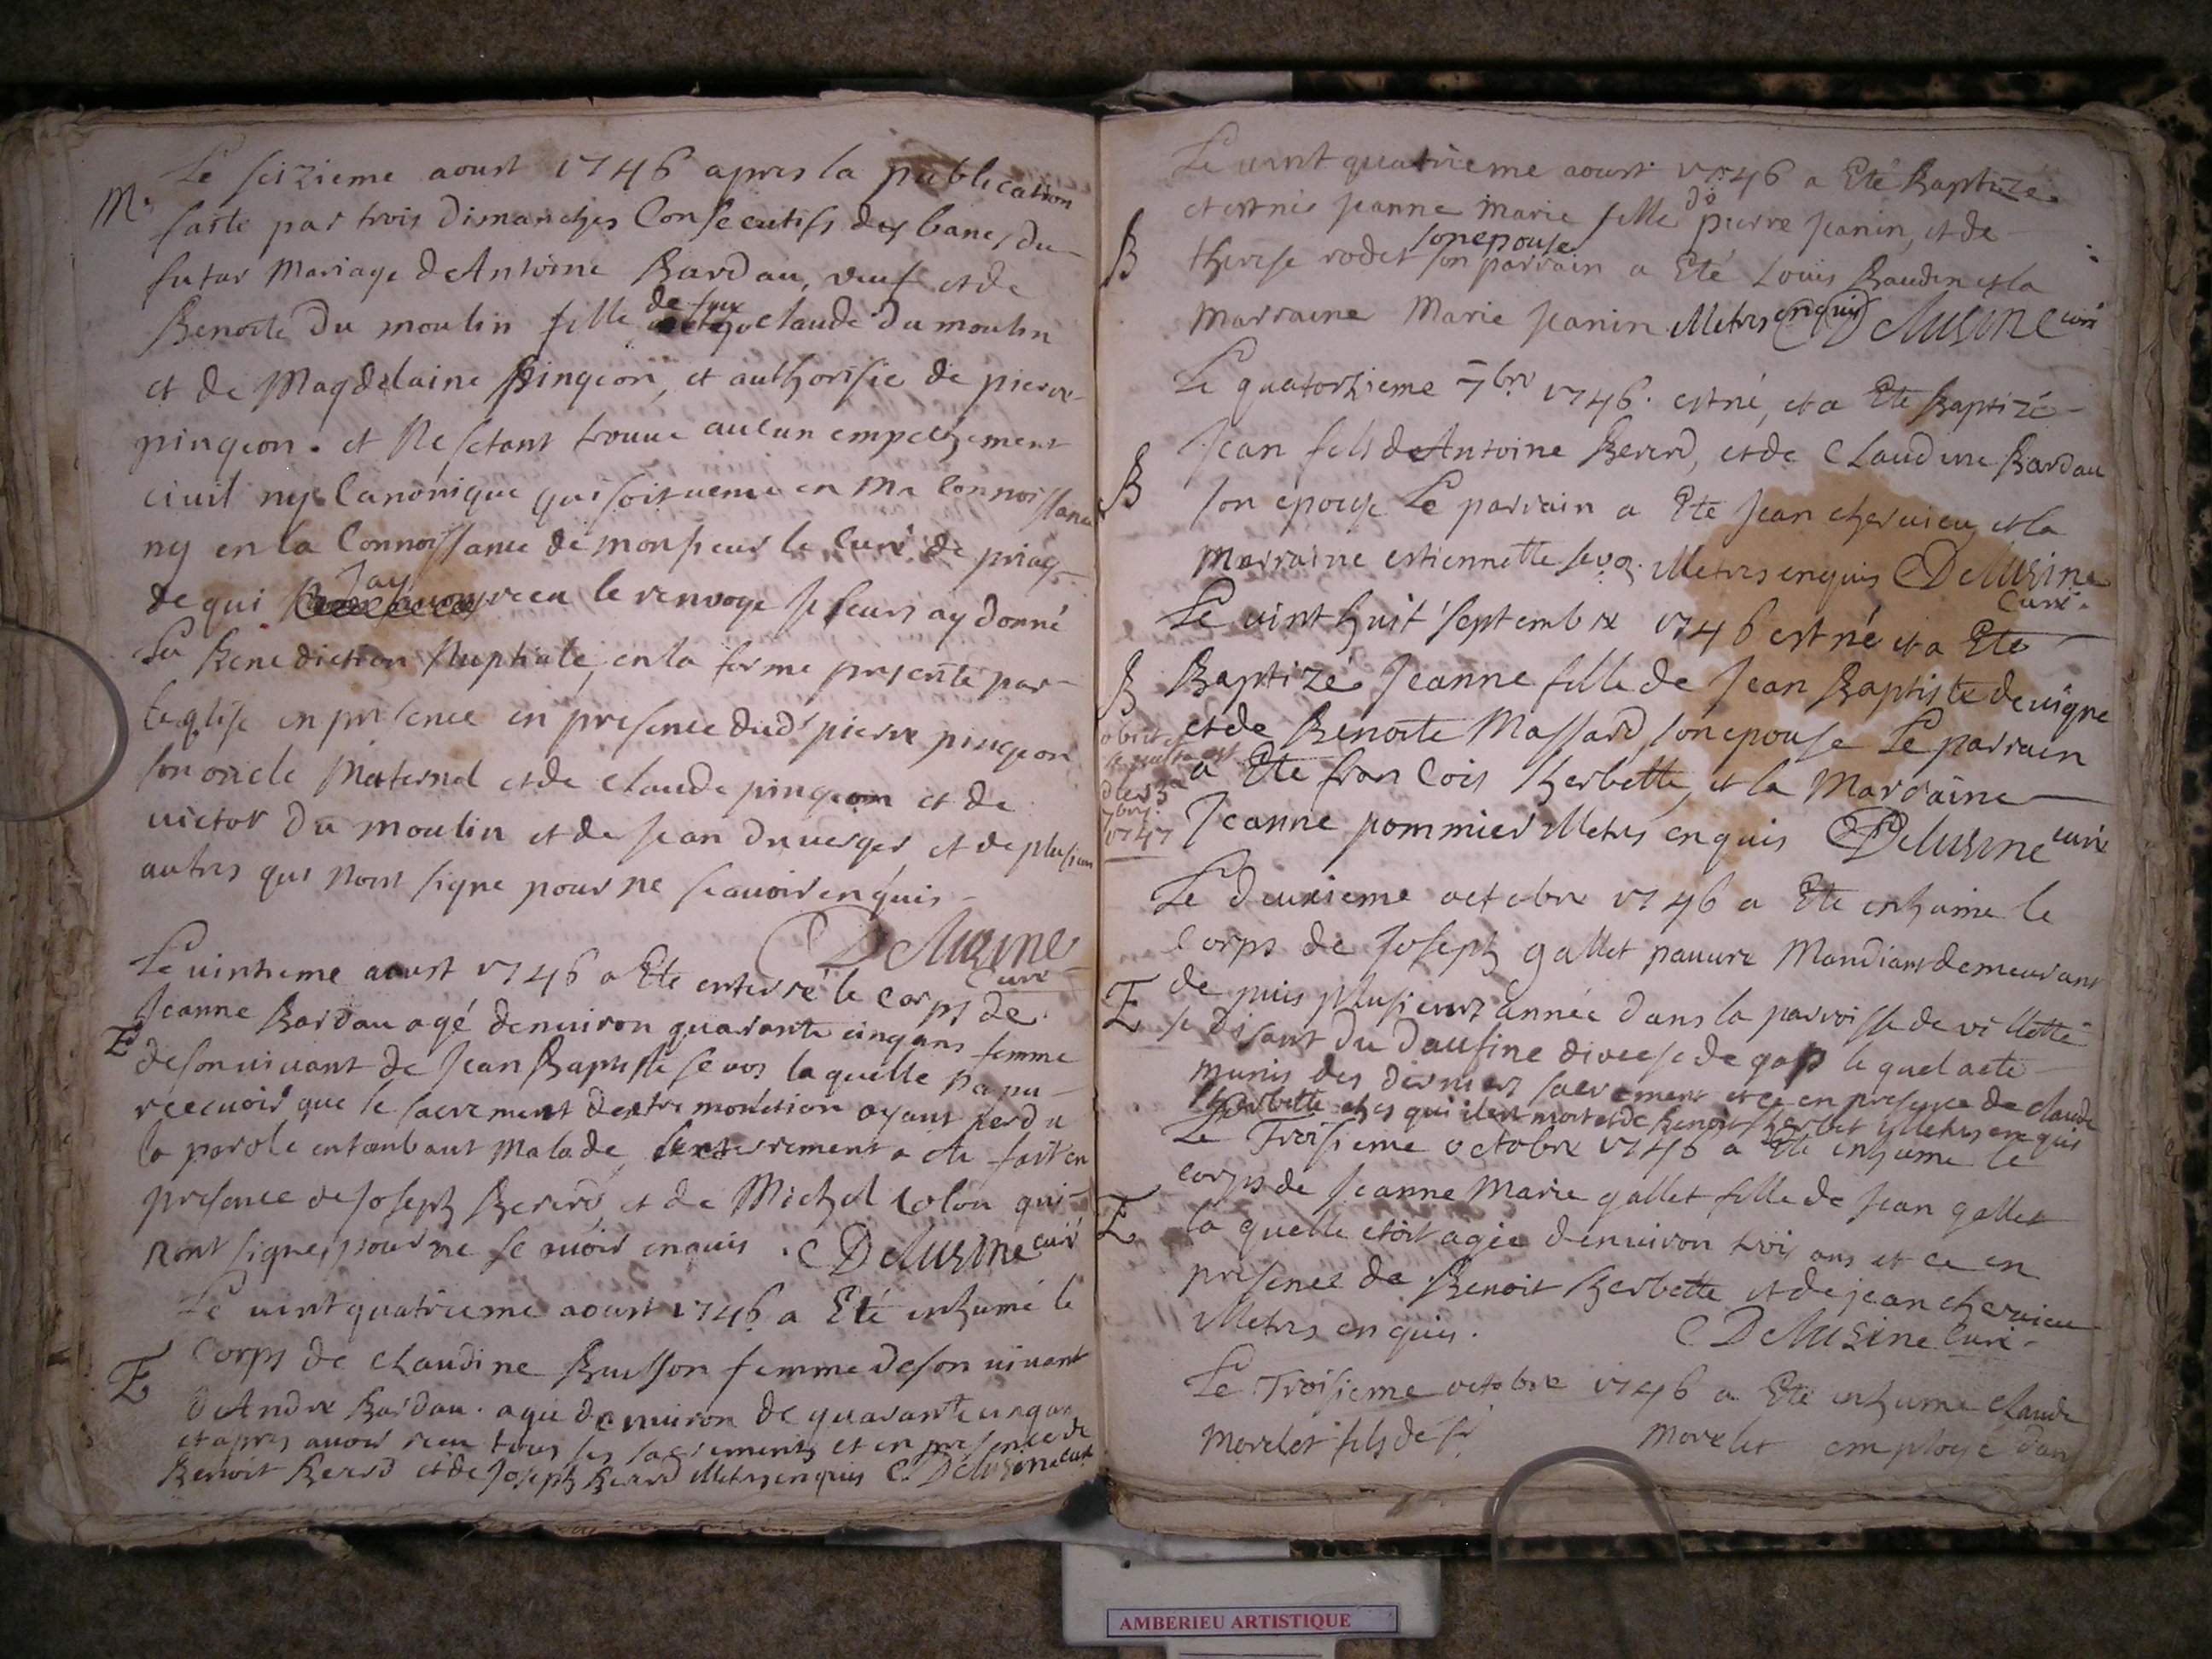 Le seizieme aoust 1746 apres la publication
M. faite par trois dimanches Consecutifs des bancs du
futur Mariage de Antoine Bardau, veuf et de
Benoite Du moulin fille de feux claude du moulin
et de Magdelaine pingeon, et authorisée de pierre
pingeon. et Ne setant trouvé aucun empechement
civil ny Canonique qui soit venu en Ma Connoissance
ny en la Connoissance de monsieur le Curé de priay
de qui Jay receu le renvoye Je leurs ay donné
La Benediction Nuptiale, en la forme prescrite par
leglise en presence en presence dud pierre pingeon
son oncle Maternel et de claude pingeon et de
victor Du moulin et de Jean Duverger et de plusieurs
autres qui nont signe pour ne scavoir enquis
Delusine
Curé
Le vintieme aoust 1746 a Eté enterré le Corps de
Jeanne Bardau agé denviron quarante cinq ans femme
E de son vivant de Jean Baptiste sevoz laquelle na pu
recevoir que le sacrement dextremonction ayant perdu
la parole en tombant Malade, lenterrement a été fait en
presence de Joseph Bererd et de Michel Colon qui
nont signe, pour ne scavoir enquis. Delusine curé
Le vint quatrieme aoust 1746 a Eté inhumé le
E Corps de claudine Buisson femme de son vivant
d'Andre Bardau. agée denviron de quarante cinq ans
et apres avoir receu tous ses sacrements et en presence de
Benoit Bererd et de Joseph Berard illetres enquis Delusine curé
Le vint quatrieme aoust 1746 a Eté Baptizé
et est née jeanne marie fille de pierre Jeanin, et de
B therese rodet son epouse son parrain a Eté Louis Baudin et la
marraine Marie Jeanin illetres enquis Delusine curé
Le quatorzieme 7bre 1746. est né, et a Eté Baptizé
Jean fils de Antoine Bererd, et de Claudine Bardau
B son epouse Le parrain a Eté Jean chervieu et la
marraine estiennette sevoz. illetres enquis Delusine
Curé.
Le vint huit septembre 1746 est né et a Eté
B Baptizé Jeanne fille de Jean Baptiste devigne
obiit et
et de Benoite Massard, son epouse Le parrain
a Eté francois herbette, et la Marraine
7bre
1747
Jeanne pommier illetres enquis Delusine curé
Le deuxieme octobre 1746 a Eté inhumé le
Corps de Joseph gallet pauvre Mandiant demeurant
E de puis plusieurs année dans la parroisse de villette
se disant du Daufine diocese de gap lequel a eté
munis des derniers sacrement et ce en presence de claude
herbette ches qui il est mort et de Benoit herbet illetres enquis
Le Troisieme octobre 1746 a Eté inhumé le
corps de Jeanne Marie gallet fille de Jean gallet
E la quelle etoit agée denviron trois ans et ce en
presence de Benoit herbette et de jean chervieu
illetres enquis. Delusine Curé.
Le Troisieme octobre 1746 a Eté inhumé claude
morelet fils de sr morelet employé dans
AMBERIEU ARTISTIQUE